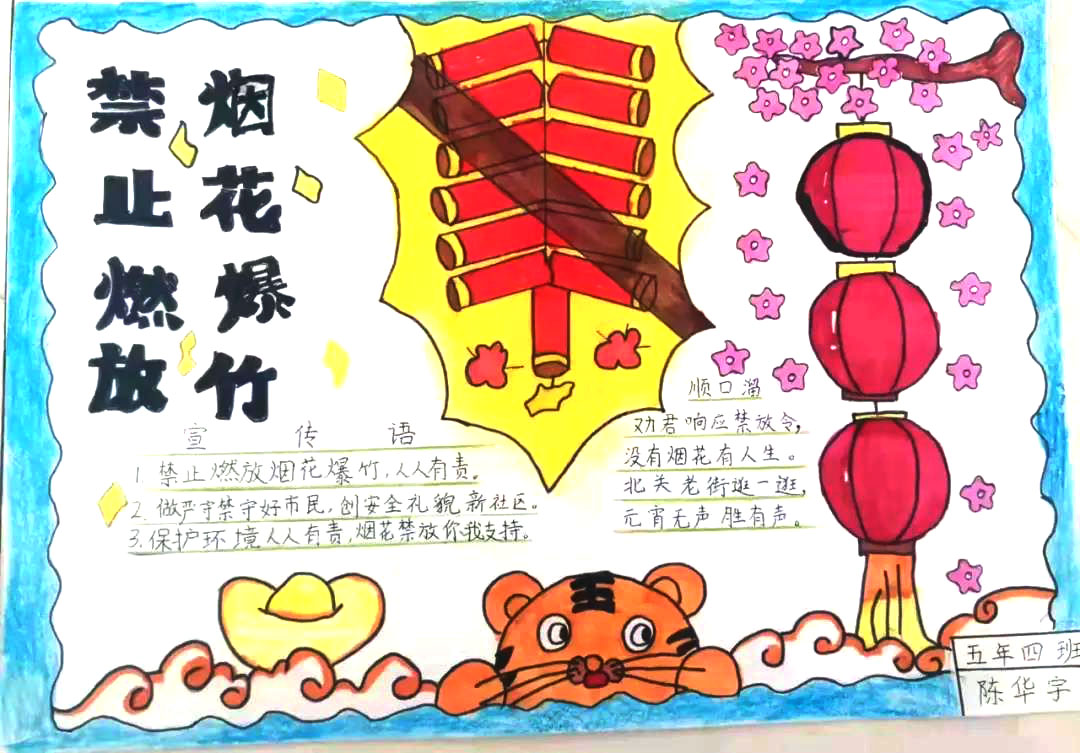 禁止燃放
烟花爆竹
宣传语
1. 禁止燃放烟花爆竹,人人有责。
2. 做严守禁守好市民,创安全礼貌新社区。
3. 保护环境人人有责,烟花禁放你我支持。
顺口溜
劝君响应禁放令,
没有烟花有人生。
北关老街逛一逛,
元宵无声胜有声。
五年四班
陈华宇